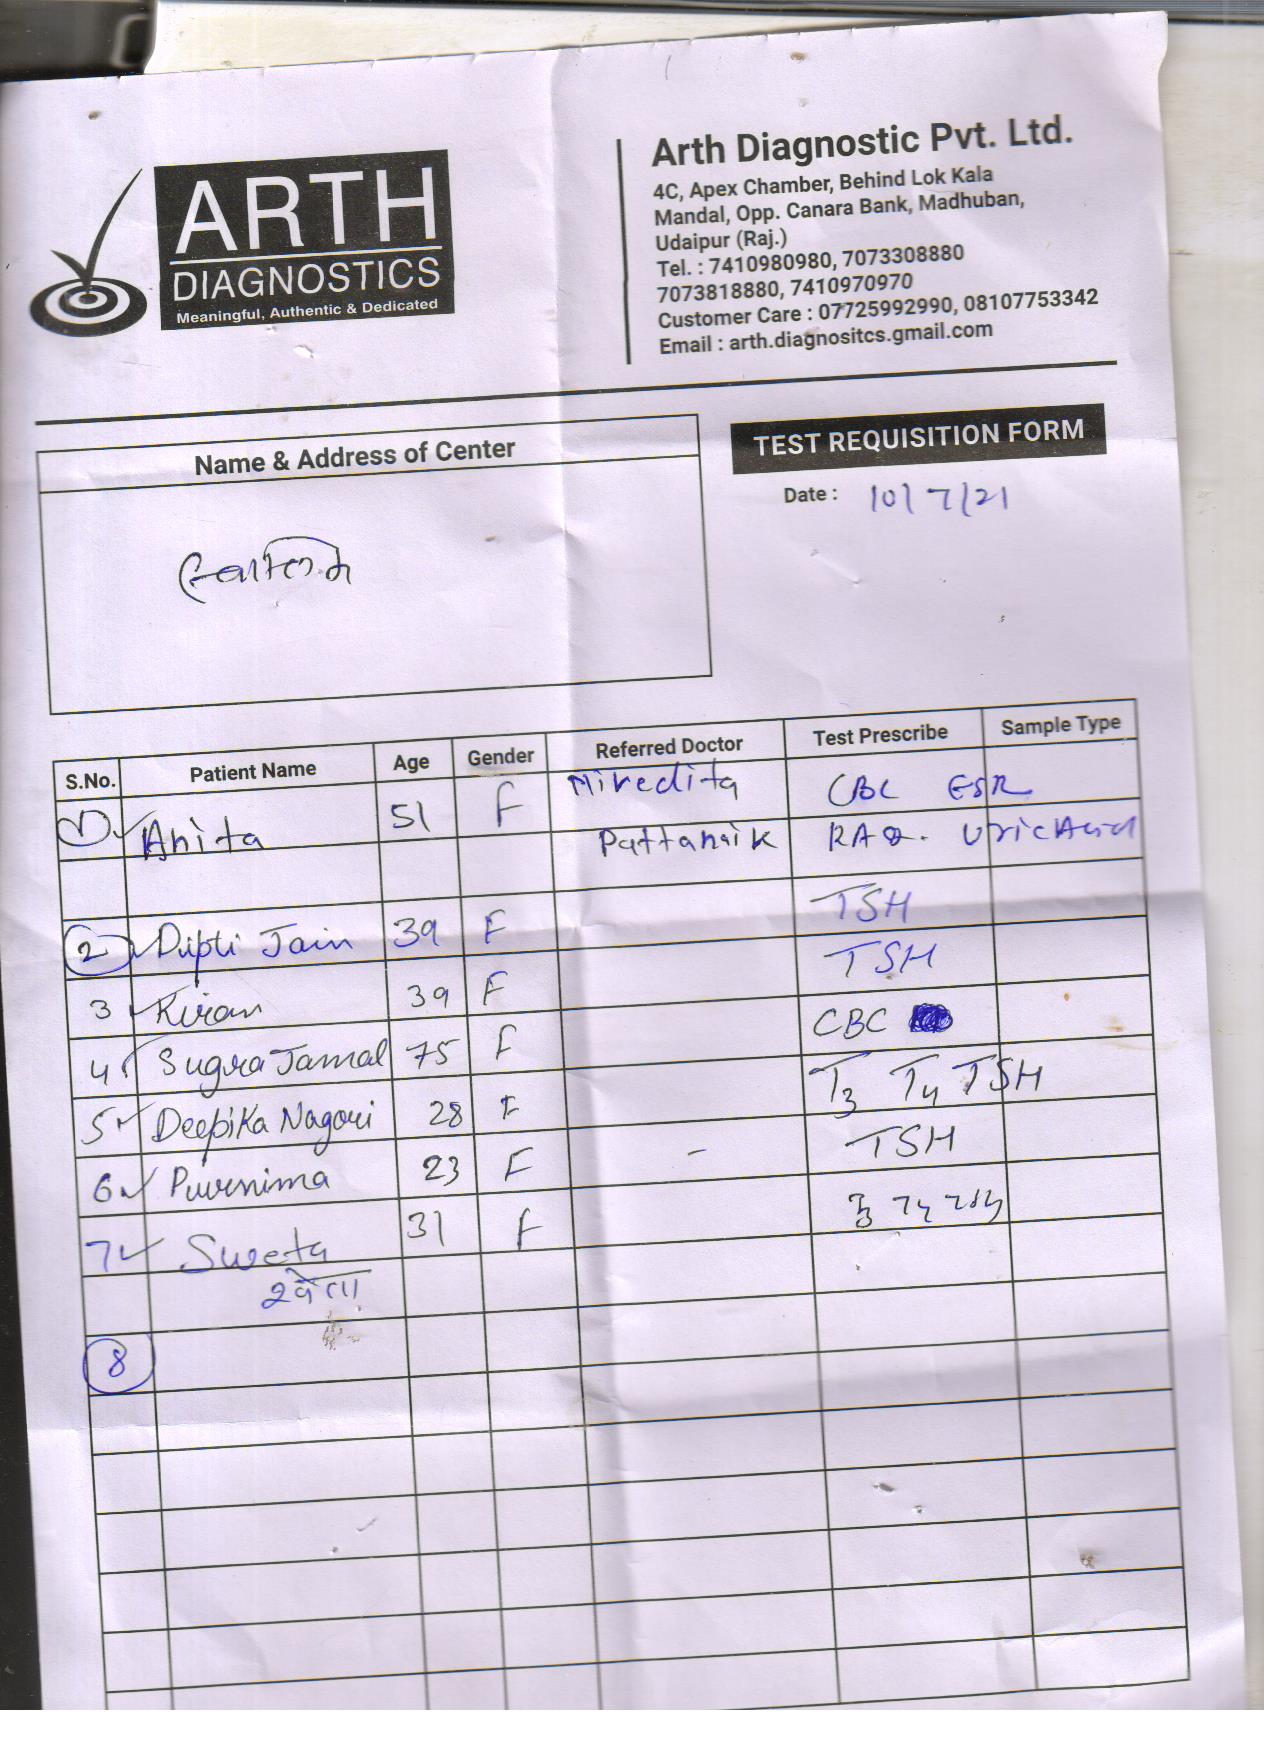 ARTH
DIAGNOSTICS
Meaningful, Authentic & Dedicated
Arth Diagnostic Pvt. Ltd.
4C, Apex Chamber, Behind Lok Kala
Mandal, Opp. Canara Bank, Madhuban,
Udaipur (Raj.)
Tel. : 7410980980, 7073308880
7073818880, 7410970970
Customer Care : 07725992990, 08107753342
Email : arth.diagnositcs.gmail.com
Name & Address of Center
TEST REQUISITION FORM
Date : 10/7/21
S.No. Patient Name Age Gender Referred Doctor Test Prescribe Sample Type
1 Anita 51 F Niredita CBC ESR
Pattanaik RA Uric Acid
2 Dipti Jain 39 F TSH
3 Kiran 39 F TSH
4 Sugra Jamal 75 F CBC
5 Deepika Nagori 28 F T3 T4 TSH
6 Purnima 23 F - TSH
7 Sweta 31 F
श्वेता
8